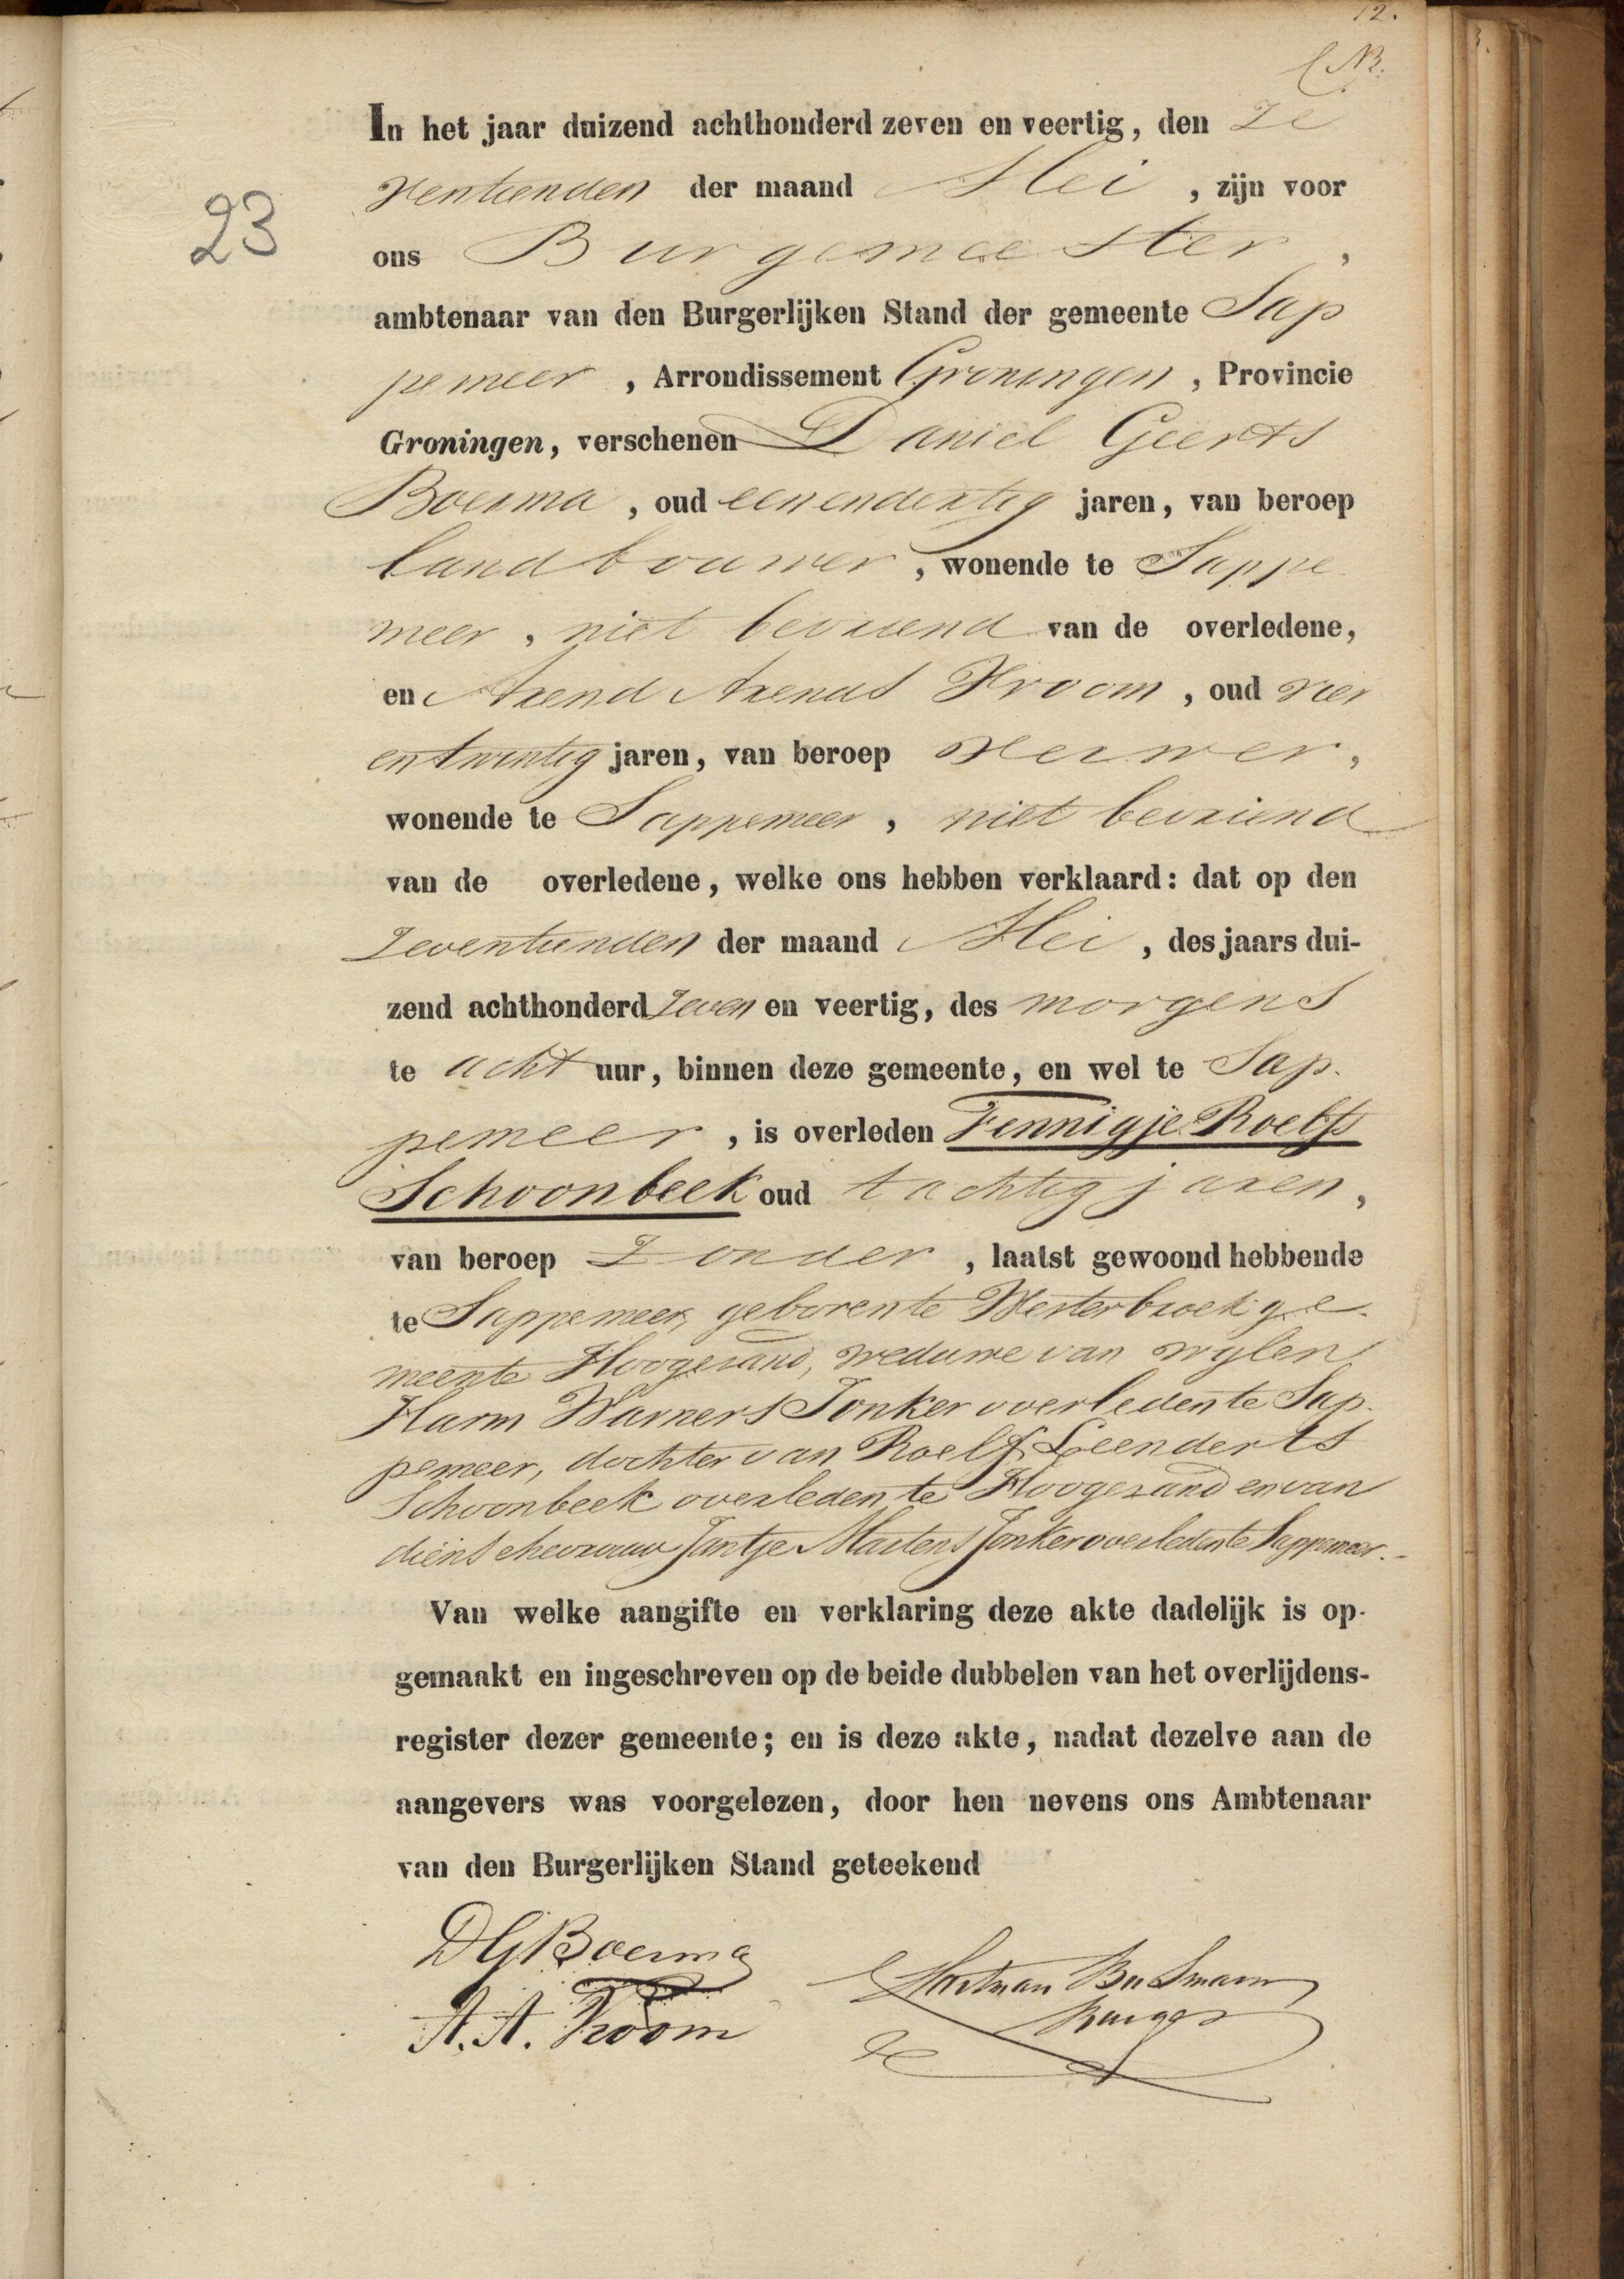 12.
In het jaar duizend achthonderd zeven en veertig, den Ze
ventienden der maand Mei, zijn voor
23
ons Burgemeester,
ambtenaar van den Burgerlijken Stand der gemeente Sap
pemeer, Arrondissement Groningen, Provincie
Groningen, verschenen Daniel Geerts
Boerma, oud eenendertig jaren, van beroep
landbouwer, wonende te Sappe
meer, niet bevriend van de overledene,
en Arend Arends Kroom, oud vier
entwintig jaren, van beroep verwer,
wonende te Sappemeer, niet bevriend
van de overledene, welke ons hebben verklaard: dat op den
Zeventienden der maand Mei, des jaars dui-
zend achthonderd Zeven en veertig, des morgens
te acht uur, binnen deze gemeente, en wel te Sap-
pemeer, is overleden Fennigje Roelfs
Schoonbeek oud tachtig jaren,
van beroep Zonder, laatst gewoond hebbende
te Sappemeer, geboren te Westerbroek ge-
meente Hoogezand, weduwe van wylen
Harm Warners Jonker overleden te Sap-
pemeer, dochter van Roelf Leenderts
Schoonbeek overleden te Hoogezand en van
diens ehevrouw Jantje Martens Jonker overleden te Sappemeer.
Van welke aangifte en verklaring deze akte dadelijk is op-
gemaakt en ingeschreven op de beide dubbelen van het overlijdens-
register dezer gemeente; en is deze akte, nadat dezelve aan de
aangevers was voorgelezen, door hen nevens ons Ambtenaar
van den Burgerlijken Stand geteekend
DGBoerma
A. A. Kroom